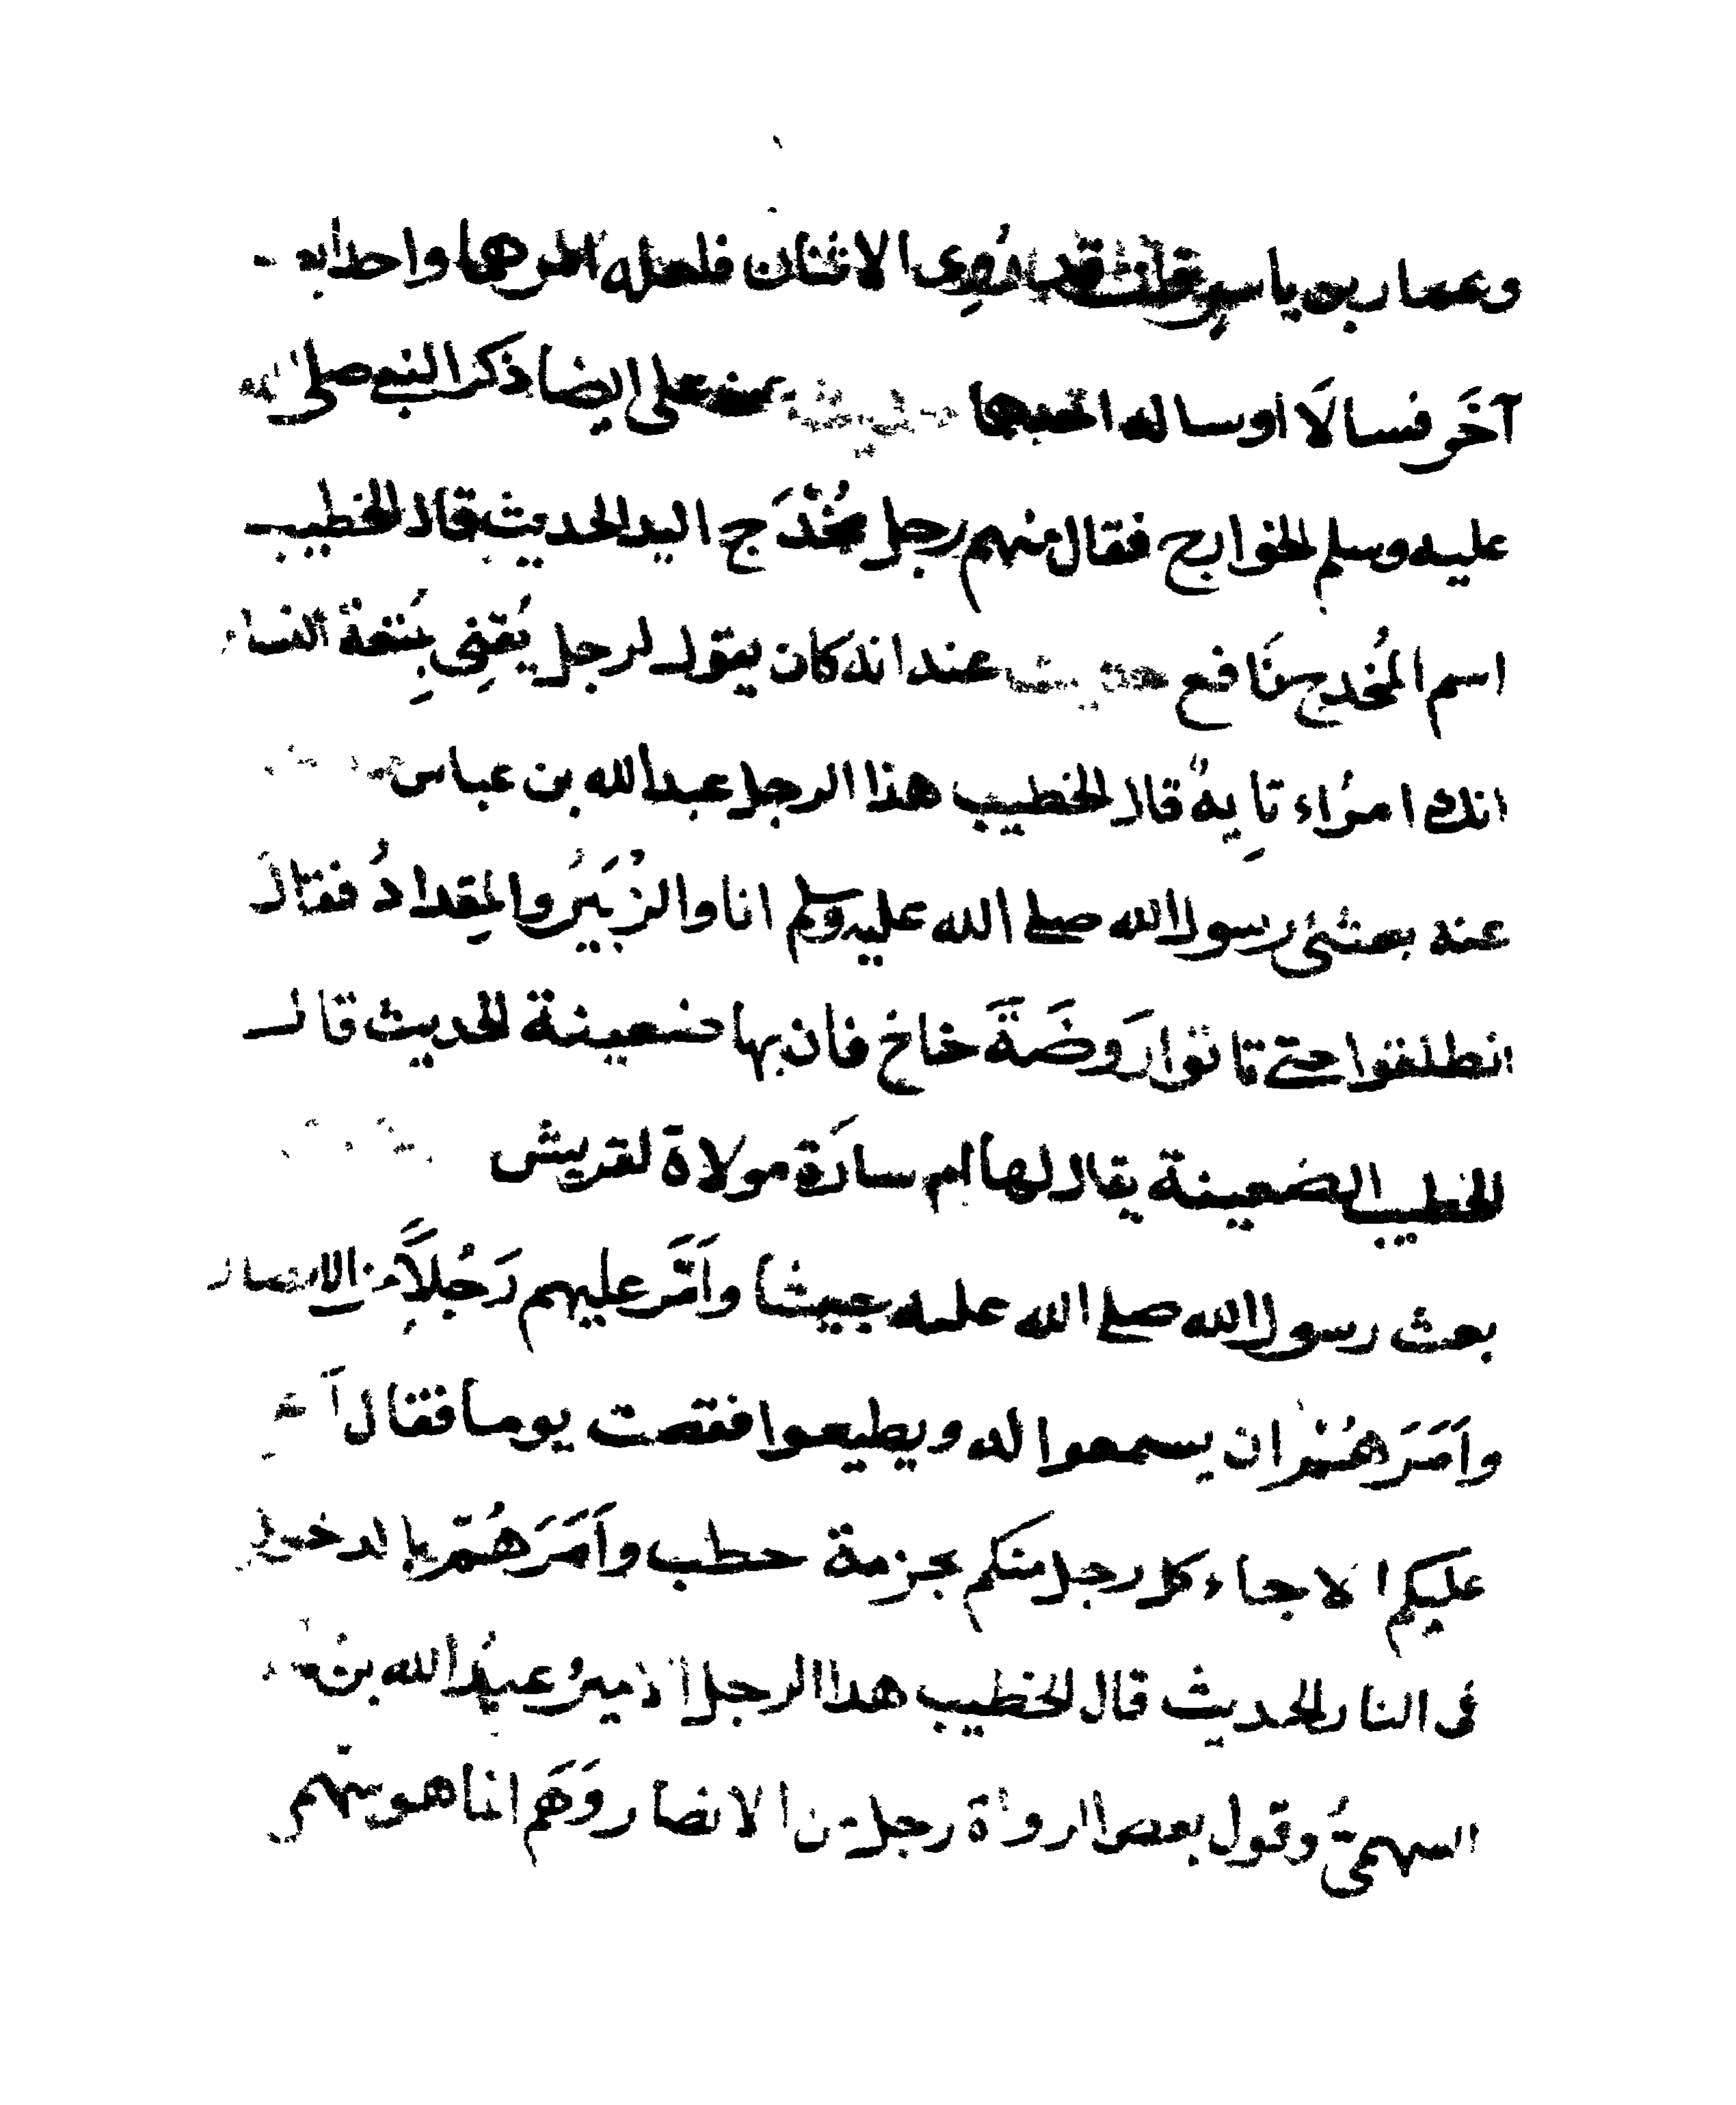 وعمار بن ياسر قلت قد روى الاثنان فلعله امر هما واحدا بعد
آخَر فسالَا او ساله احدهما حديث عنه على ايضا ذكر النبي صلى الله
عليه وسلم الخوارج فقال منهم رجل مُخْدَج اليد الحديث قال الخطيب
اسم المُخدج نَافع حديث عنه انه كان يقول لرجل يُفتِي بِمُتعة النساء
انك امرُاء تايِهٌ قال الخطيب هذا الرجل عبد الله بن عباس
عنه بعثنى رسول الله صلى الله عليه وسلم انا والزُبَيْرُ والمِقدادُ فقال
انطلقوا حتى تاتوا رَوضَةَ خاخ فان بها ضعينة الحديث قال
الخطيب الضعينة يقال لها ام سارَة مولاة لقريش
بعث رسول الله صلى الله عليه جيشا واَمَّر عليهم رَجُلاً مِن الانصار
واَمَرَهُمْ ان يسمعوا له ويطيعوا فقعت يوما فقال
عليكم الا جاء كل رجل منكم بحزمة حطب واَمَرَهُمْ بالدخول
فى النار الحديث قال الخطيب هذا الرجل الاميرُ عبدُ الله بن
السهمىُّ وقول بعض الرواة رجل من الانصار وَهَم انما هو سهمى